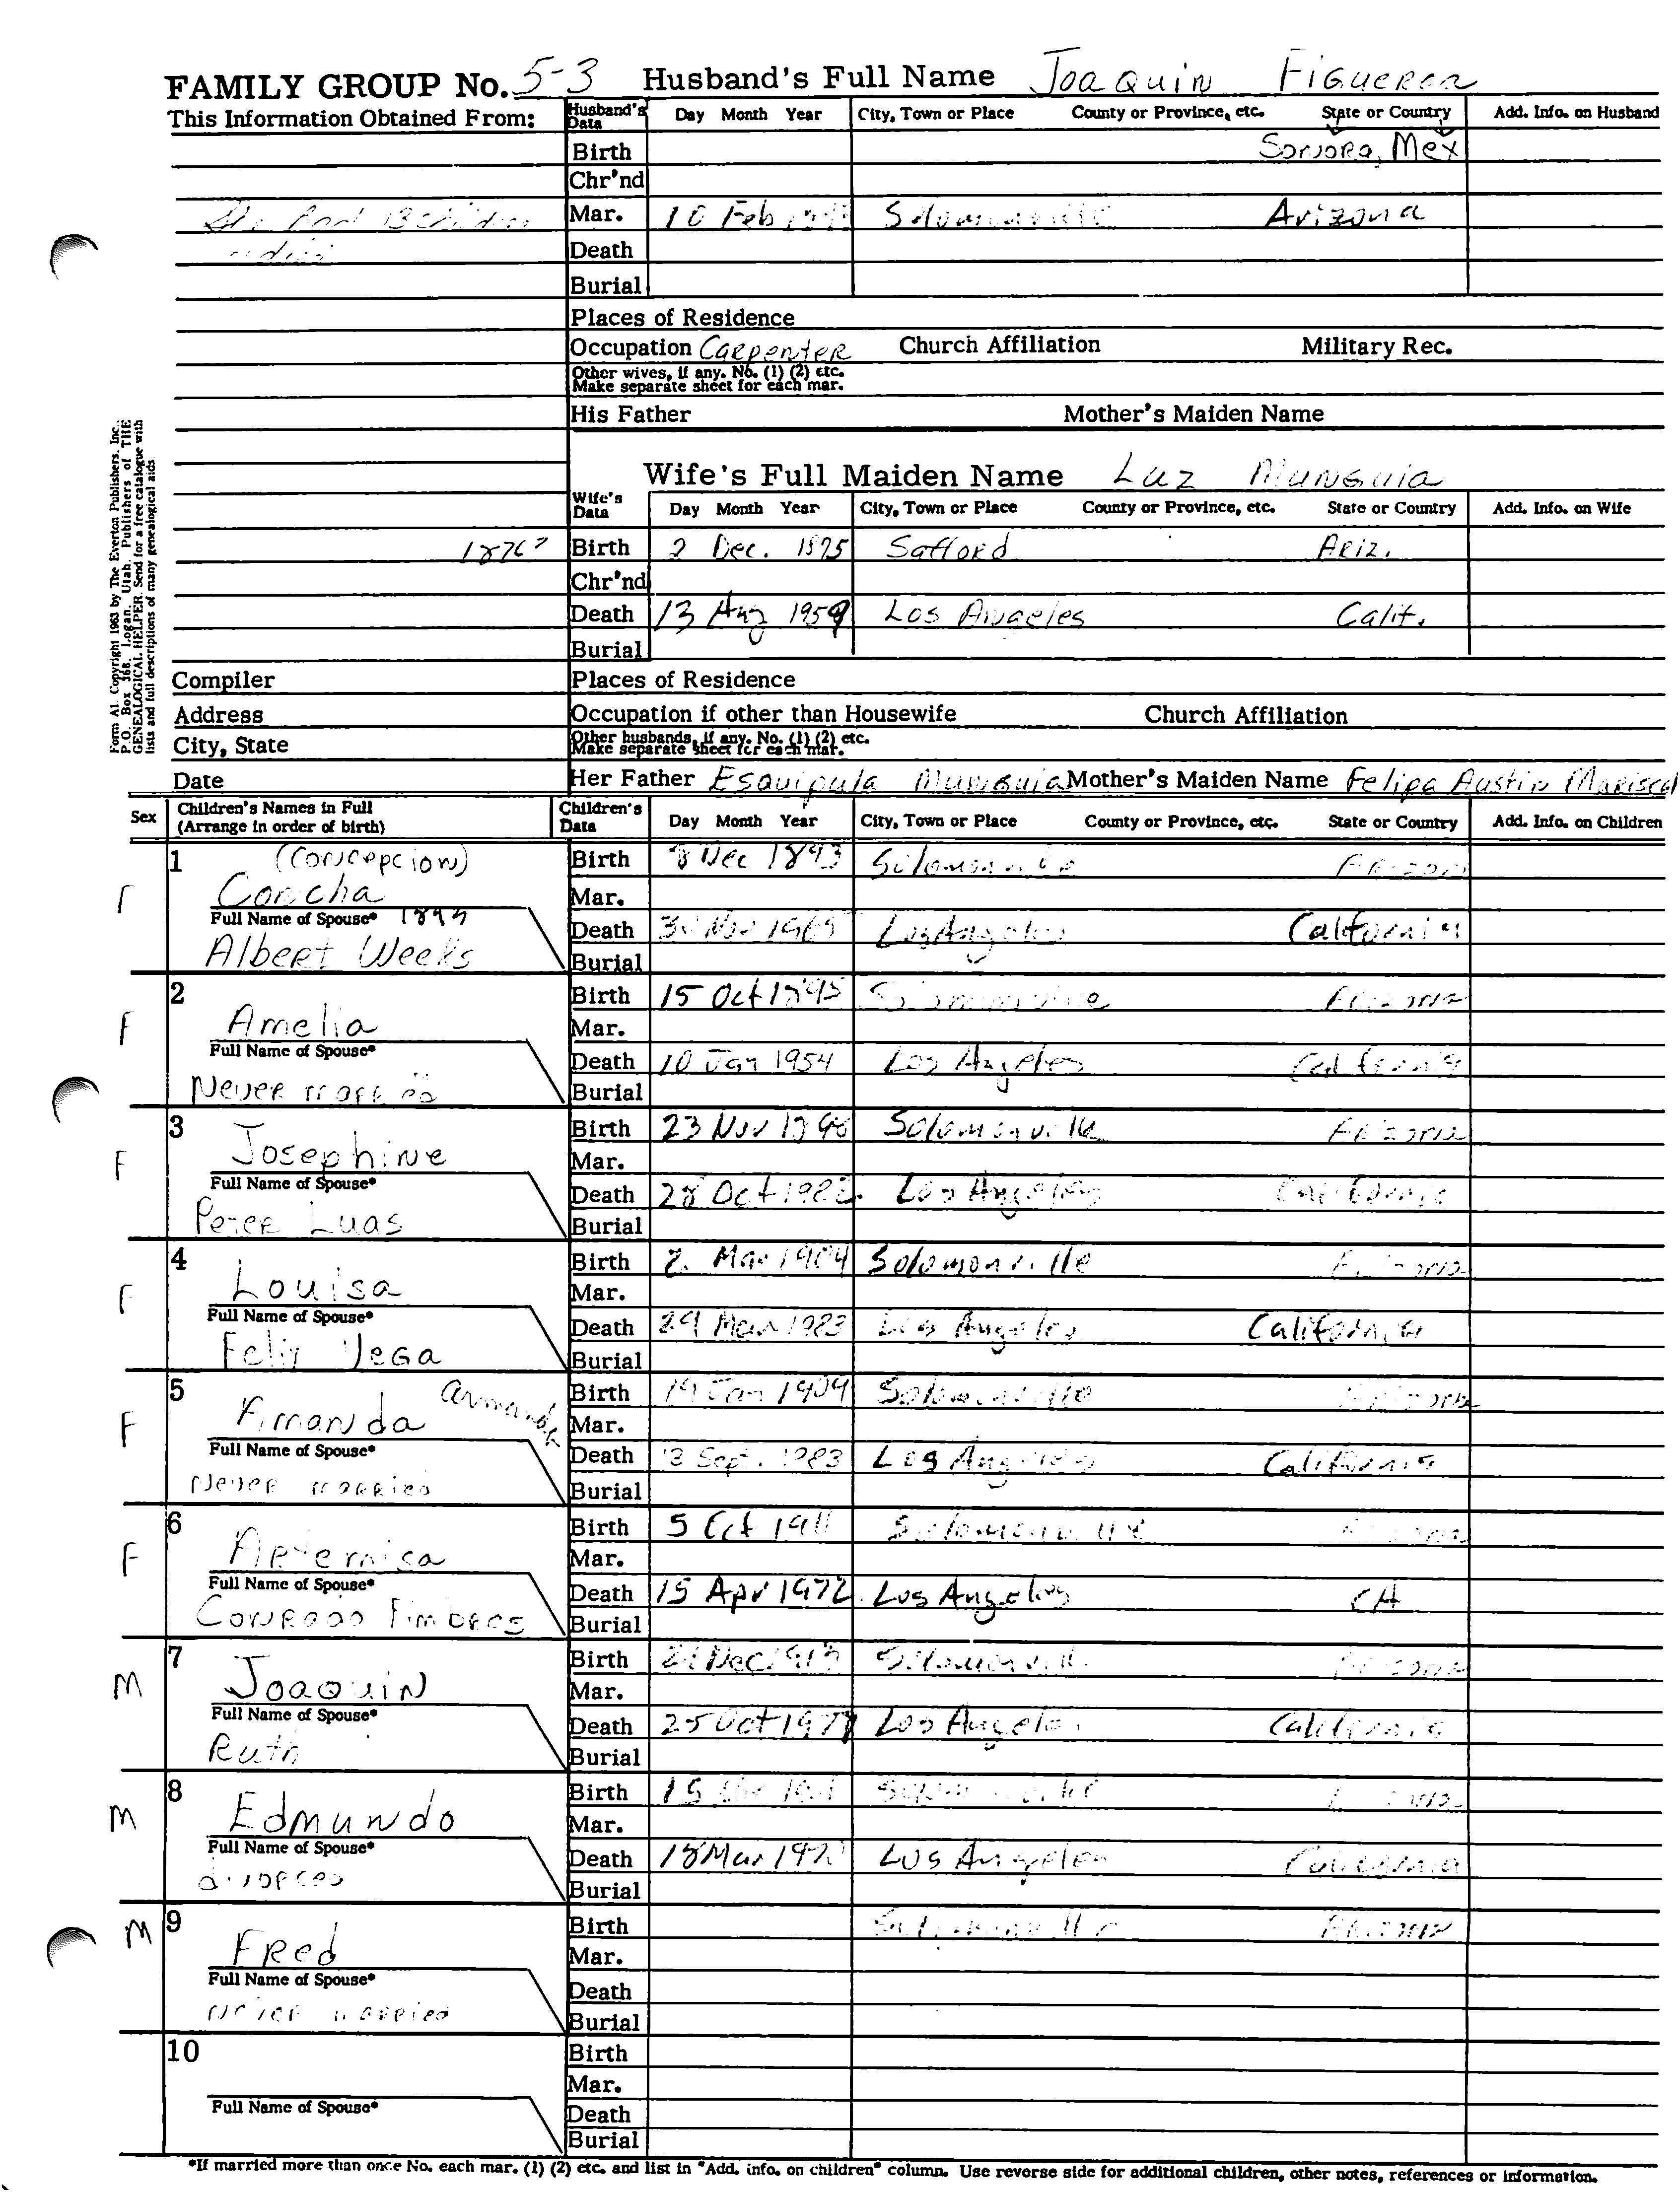 FAMILY GROUP No. 5-3 Husband's Full Name Joaquin Figueroa
This Information Obtained From: Husband's Data Day Month Year City, Town or Place County or Province, etc. State or Country Add. Info. on Husband
Birth Sonora, Mex
Chr'nd
She had 13 children Mar. 10 Feb Solomonville Arizona
Death
Burial
Places of Residence
Occupation Carpenter Church Affiliation Military Rec.
Other wives, if any. No. (1) (2) etc.
Make separate sheet for each mar.
His Father Mother's Maiden Name
Form A1. Copyright 1963 by The Everton Publishers, Inc.,
P.O. Box 368, Logan, Utah. Publishers of THE
GENEALOGICAL HELPER. Send for a free catalogue with
lists and full descriptions of many genealogical aids
Wife's Full Maiden Name Luz Munguia
Wife's Data Day Month Year City, Town or Place County or Province, etc. State or Country Add. Info. on Wife
1876? Birth 2 Dec. 1875 Safford Ariz.
Chr'nd
Death 13 Aug 1959 Los Angeles Calif.
Burial
Compiler Places of Residence
Address Occupation if other than Housewife Church Affiliation
City, State Other husbands, if any. No. (1) (2) etc.
Make separate sheet for each mar.
Date Her Father Esquipula Munguia Mother's Maiden Name Felipa Austin Mariscal
Sex Children's Names in Full
(Arrange in order of birth) Children's Data Day Month Year City, Town or Place County or Province, etc. State or Country Add. Info. on Children
1 (Concepcion) Birth 8 Dec 1893 Solomonville Arizona
F Concha Mar.
Full Name of Spouse* Death Nov Los Angeles California
Albert Weeks Burial
2 Birth 15 Oct 1895 Solomonville Arizona
F Amelia Mar.
Full Name of Spouse* Death 10 Jan 1954 Los Angeles California
Never married Burial
3 Birth 23 Nov Solomonville Arizona
F Josephine Mar.
Full Name of Spouse* Death 28 Oct 1982 Los Angeles California
Peter Luas Burial
4 Birth 2 Mar 1904 Solomonville Arizona
F Louisa Mar.
Full Name of Spouse* Death 29 Mar 1983 Los Angeles California
Felix Vega Burial
5 Birth 19 Jan 1909 Solomonville Arizona
F Amanda Armanda Mar.
Full Name of Spouse* Death Sept. 1983 Los Angeles California
Never married Burial
6 Birth 5 Oct 1911 Solomonville Arizona
F Artemisa Mar.
Full Name of Spouse* Death 15 Apr 1972 Los Angeles CA
Conrado Fimbres Burial
7 Birth Dec Solomonville Arizona
M Joaquin Mar.
Full Name of Spouse* Death 25 Oct Los Angeles California
Ruth Burial
8 Birth 15 Solomonville Arizona
M Edmundo Mar.
Full Name of Spouse* Death 18 Mar Los Angeles California
divorced Burial
9 Birth Solomonville Arizona
M Fred Mar.
Full Name of Spouse* Death
never married Burial
10 Birth
Mar.
Full Name of Spouse* Death
Burial
*If married more than once No. each mar. (1) (2) etc. and list in "Add. info. on children" column. Use reverse side for additional children, other notes, references or information.